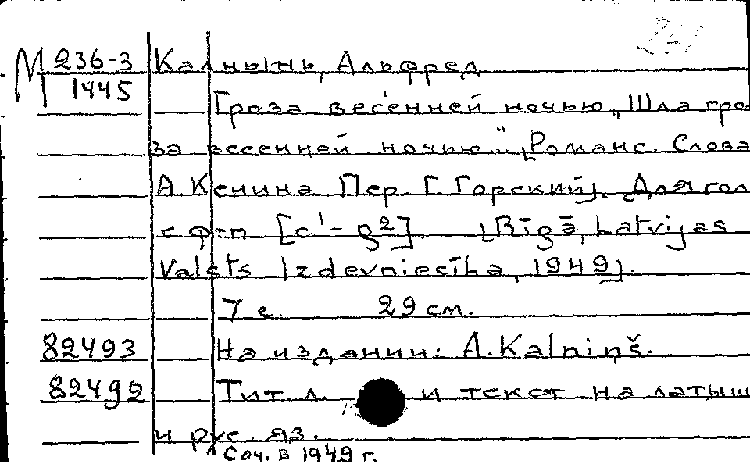 М 236-3 Калнынь, Альфред
1445 Гроза весенней ночью. „Шла гро
за весенней ночью". [Романс. Слова
А. Кенина. Пер. Г. Горский]. Для гол.
с ф-п [c¹ - g²]. [Rīgā, Latvijas
Valsts Izdevniecība, 1949].
7 с. 29 см.
82493 На издании: A. Kalniņš.
82492 Тит. л. и текст на латыш
и рус. яз.
Соч. в 1949 г.